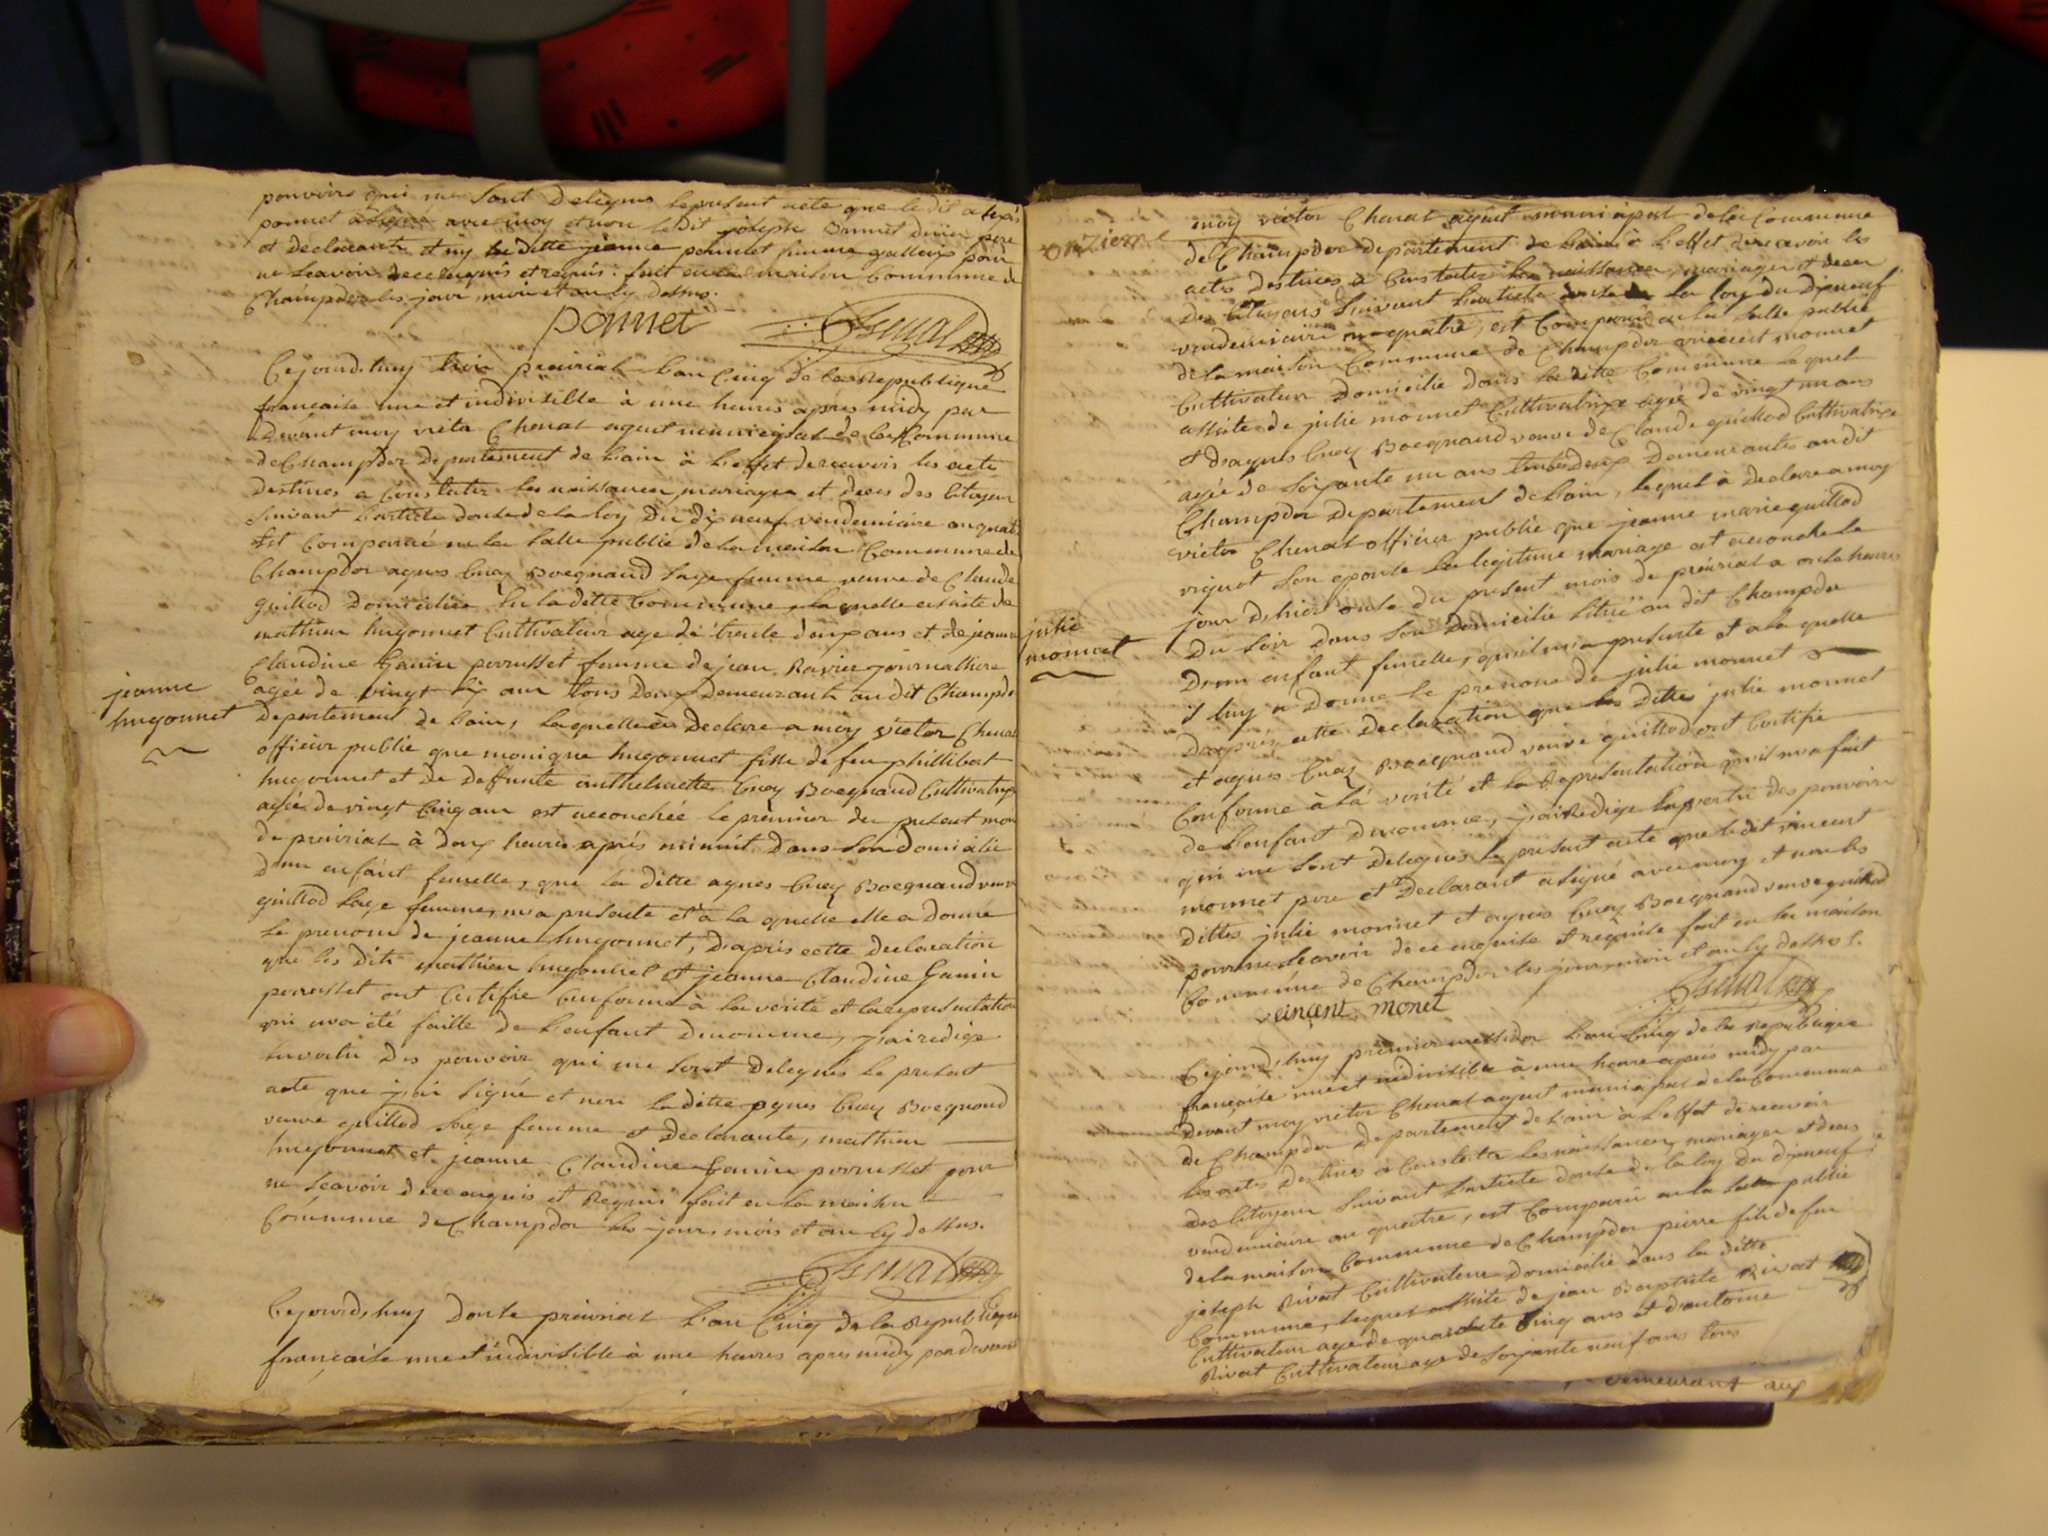 pouvoirs qui me sont delegues le present acte que le dit alexis
ponnet a signé avec moy et non le dit joseph
et declarante et ny la ditte jeanne ponnet femme pour
ne scavoir de ce enquis et requis. fait en la maison Commune de
Champdor les jour, mois et an cy dessus.
ponnet
Cejourd'huy trois preirial l'an Cinq de la Republique
francaise une et indivisible à une heures apres midy par
Devant moy victor Chenal agent municipal de la Commune
de Champdor departement de l'ain à l'effet de recevoir les acte
Destines a Constater les naissances, mariages et deces des Citoyen
suivant l'article douse de la loy du dix neuf vendemiaire an quatre
Est Comparüe en la salle publie de la maison Commune de
Champdor agnes Cuaz Boegnaud sage femme veuve de Claude
guillod Domiciliée sur la ditte Commune, la quelle assisté de
mathieu hugonnet Cultivateur age de trente deux ans et de jeanne
Claudine Ganin perrusset femme de jean Ravier journalliere
agée de vingt six ans tous Deux Demeurants au dit Champdor
departement de l'ain, laquelle à Declare a moy victor Chenal
officier publie que monique hugonnet fille de feu phillibert
hugonnet et de deffunte anthelmette Cuaz Boegnaud Cultivatrice
agée de vingt Cinq ans est accouchée le premier du present mois
de preirial à deux heures après minuit Dans son Domicilie
D'un enfant femelle, que la ditte agnes Cuaz Boegnaud veuve
guillod sage femme, m'a presente et à la quelle elle a Donne
le prenom de jeanne hugonnet, D'après cette declaration
que les dits mathieu hugonnet et jeanne Claudine Ganin
perrusset ont Certifie Conforme à la verité et la representation
qui m'a été faitte de l'enfant denommé, j'ai redige
en vertu Des pouvoir qui me sont delegués le present
acte que j'ai signé et non la ditte agnes Cuaz Boegnaud
veuve guillod sage femme et Declarante, mathieu
hugonnet et jeanne Claudine Ganin perrusset pour
ne scavoir de ce enquis et Requis fait en la maison
Commune de Champdor les jours, mois et an cy dessus.
jeanne
hugonnet
Cejourd'huy Douse preirial l'an Cinq de la Republique
francaise une et indivisible à une heures apres midy par devant
onzieme
moy victor Chenal agent municipal de la Commune
de Champdor departement de l'ain à l'effet de recevoir les
actes destines à Constater les naissances, mariages et deces
Des Citoyens suivant l'article douse de la loy du dixneuf
vendemiaire an quatre, est Comparu en la salle publie
de la maison Commune de Champdor vincent monnet
Cultivateur Domicilie dans la ditte Commune lequel
assiste de julie monnet Cultivatrice agée de vingt un ans
et d'agnes Cuaz Boegnaud veuve de Claude guillod Cultivatrice
agée de soixante un ans toutes Deux Demeurantes au dit
Champdor Departement de l'ain, lequel à Declare a moy
victor Chenal officier publie que jeanne marie guillod
vignot son epouse en legitime mariage est accouche le
jour d'hier onse du present mois de preirial a onse heures
Du soir dans son Domicilie situé au dit Champdor
D'un enfant femelle, qu'il m'a presente et a la quelle
il luy a Donne le prenom de julie monnet
D'après cette Declaration que les dittes julie monnet
et agnes Cuaz Boegnaud veuve guillod ont Certifie
Conforme à la verité et la Representation qu'il m'a fait
de l'enfant denomme, j'ai Redige en vertu des pouvoir
qui me sont Delegues le present acte que le dit vincent
monnet pere et Declarant a signé avec moy et non les
dittes julie monnet et agnes Cuaz Boegnaud veuve guillod
pour ne scavoir de ce enquise et requise fait en la maison
Commune de Champdor les jour, mois et an cy dessus.
veincent monet
julie
monnet
Cejourd'huy premier messidor l'an Cinq de la republique
francaise une et indivisible à une heure apres midy par
devant moy victor Chenal agent municipal de la Commune
de Champdor Departement de l'ain à l'effet de recevoir
les actes destines à Constater les naissances, mariages et deces
des Citoyen suivant l'article douse de la loy du dixneuf
vendemiaire an quatre, est Comparu en la salle publie
de la maison Commune de Champdor pierre fils de feu
joseph Rivat Cultivateur Domicilie dans la ditte
Commune, lequel assiste de jean Baptiste Rivat
Cultivateur age de quarante Cinq ans et d'antoine
Rivat Cultivateur age de soixante neuf ans tous
demeurant aux